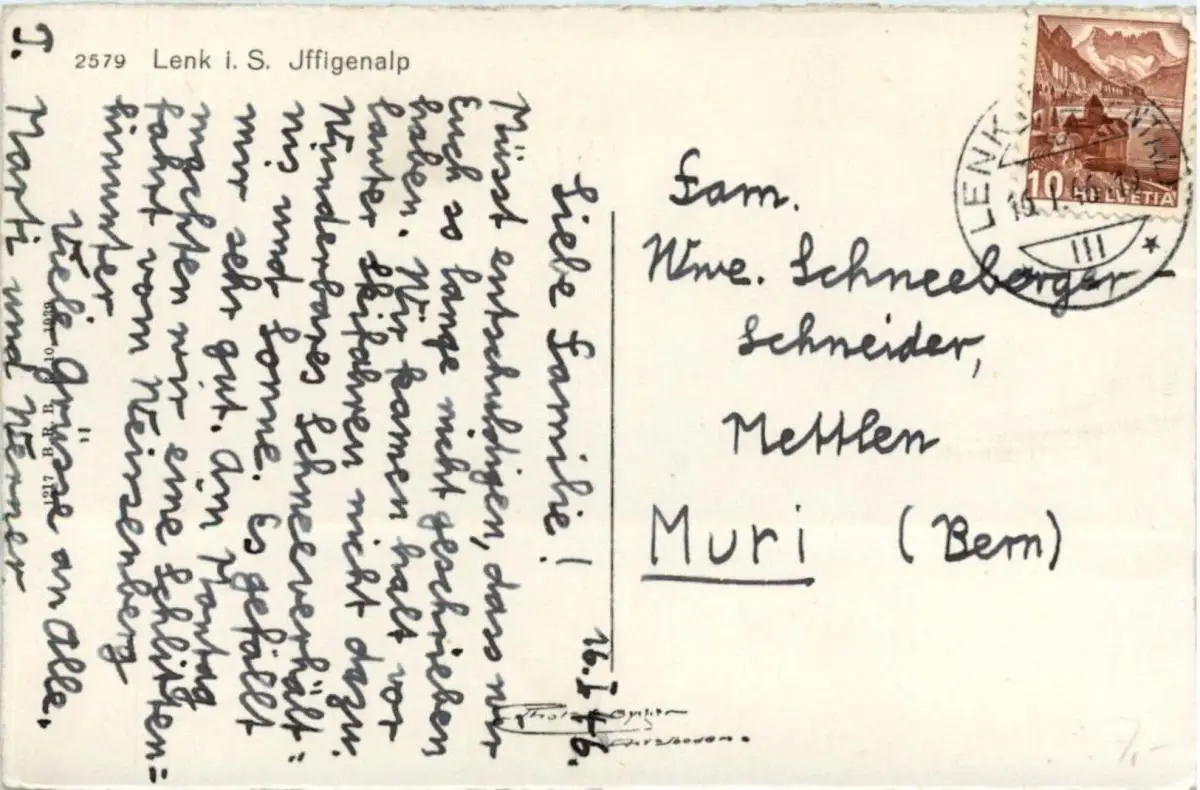 2579 Lenk i. S. Jffigenalp
16. I. 46.
Liebe Familie!
Müsst entschuldigen, dass wir
Euch so lange nicht geschrieben
haben. Wir kamen halt vor
lauter Skifahren nicht dazu.
Wunderbares Schneeverhält=
nis und Sonne. Es gefällt
mir sehr gut. Am Montag
machten wir eine Schlitten=
fahrt vom Weissenberg
hinunter
Viele Grüsse an Alle.
Marti und Werner
J.
Fam.
Wwe. Schneeberger-
Schneider,
Mettlen
Muri (Bern)
10 HELVETIA
LENK
III
7,-